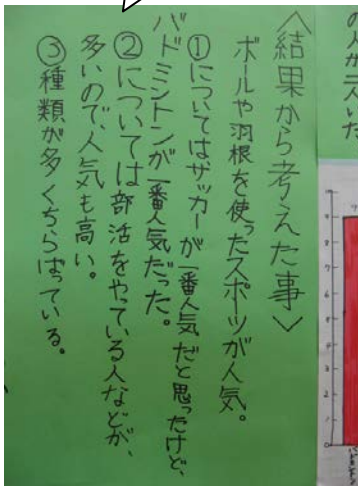 〈結果から考えた事〉
ボールや羽根を使ったスポーツが人気。
①についてはサッカーが一番人気だと思ったけど、
バドミントンが一番人気だった。
②については部活をやっている人などが、
多いので、人気も高い。
③種類が多くちらばっている。